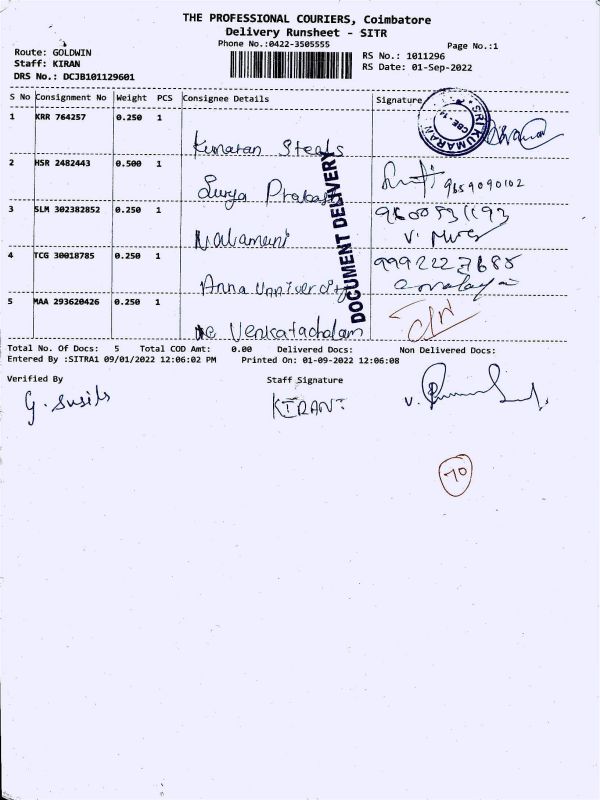 THE PROFESSIONAL COURIERS, Coimbatore
Delivery Runsheet - SITR
Phone No.:0422-3505555
Page No.:1
Route: GOLDWIN
Staff: KIRAN
DRS No.: DCJB101129601
RS No.: 1011296
RS Date: 01-Sep-2022
S No Consignment No Weight PCS Consignee Details Signature
1 KRR 764257 0.250 1
Kumaran Steals
SRI KUMARAN
CBE-14
2 HSR 2482443 0.500 1
Surya Prabash
9659090102
3 SLM 302382852 0.250 1
Nalamani
9600531193
4 TCG 30018785 0.250 1
Anna University
9992227685
5 MAA 293620426 0.250 1
Venkatachalam
DOCUMENT DELIVERY
Total No. Of Docs: 5 Total COD Amt: 0.00 Delivered Docs: Non Delivered Docs:
Entered By :SITRA1 09/01/2022 12:06:02 PM Printed On: 01-09-2022 12:06:08
Verified By Staff Signature
G. Susila
KIRAN
70